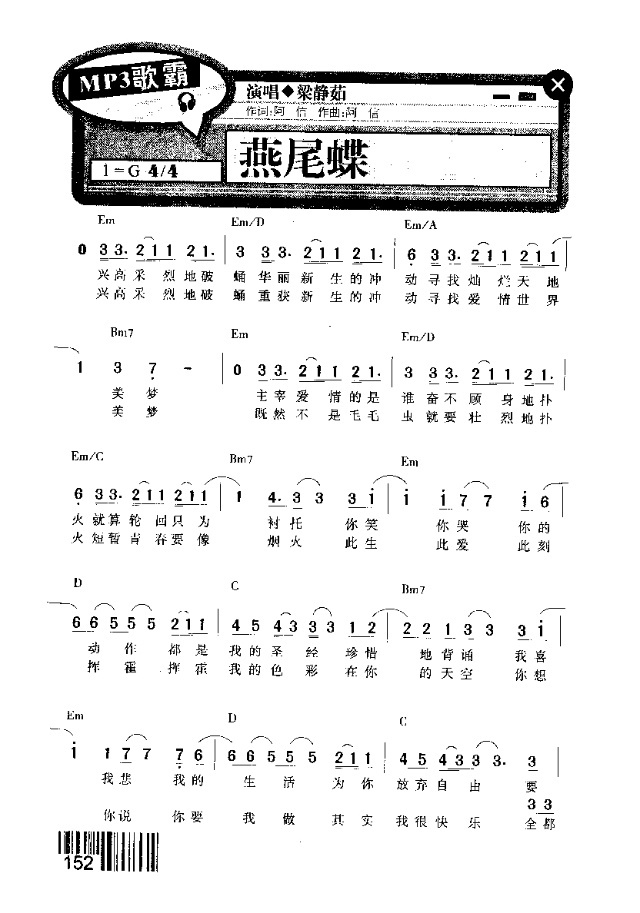 MP3歌霸
演唱◆梁静茹
作词:阿 信 作曲:阿 信
燕尾蝶
1=G 4/4
Em Em/D Em/A
0 3 3. 2 1 1 2 1. | 3 3 3. 2 1 1 2 1. | 6 3 3. 2 1 1 2 1 1 |
兴高采 烈地破 蛹华丽新 生的冲 动寻找灿 烂天地
兴高采 烈地破 蛹重获新 生的冲 动寻找爱 情世界
Bm7 Em Em/D
1 3 7 - | 0 3 3. 2 1 1 2 1. | 3 3 3. 2 1 1 2 1. |
美 梦 主宰爱 情的是 谁奋不顾 身地扑
美 梦 既然不 是毛毛 虫就要壮 烈地扑
Em/C Bm7 Em
6 3 3. 2 1 1 2 1 1 | 1 4. 3 3 3 i | i 1 7 7 1 6 |
火就算轮 回只为 衬托 你笑 你哭 你的
火短暂青 春要像 烟火 此生 此爱 此刻
D C Bm7
6 6 5 5 5 2 1 1 | 4 5 4 3 3 3 1 2 | 2 2 1 3 3 3 i |
动作 都是 我的圣经珍惜 地背诵 我喜
挥霍 挥霍 我的色彩在你 的天空 你想
Em D C
i 1 7 7 7 6 | 6 6 5 5 5 1 2 | 4 5 4 3 3 3. 3 |
我悲 我的 生活 为你 放弃自由 要
3 3
你说 你要 我做 其实 我很快乐 全都
152